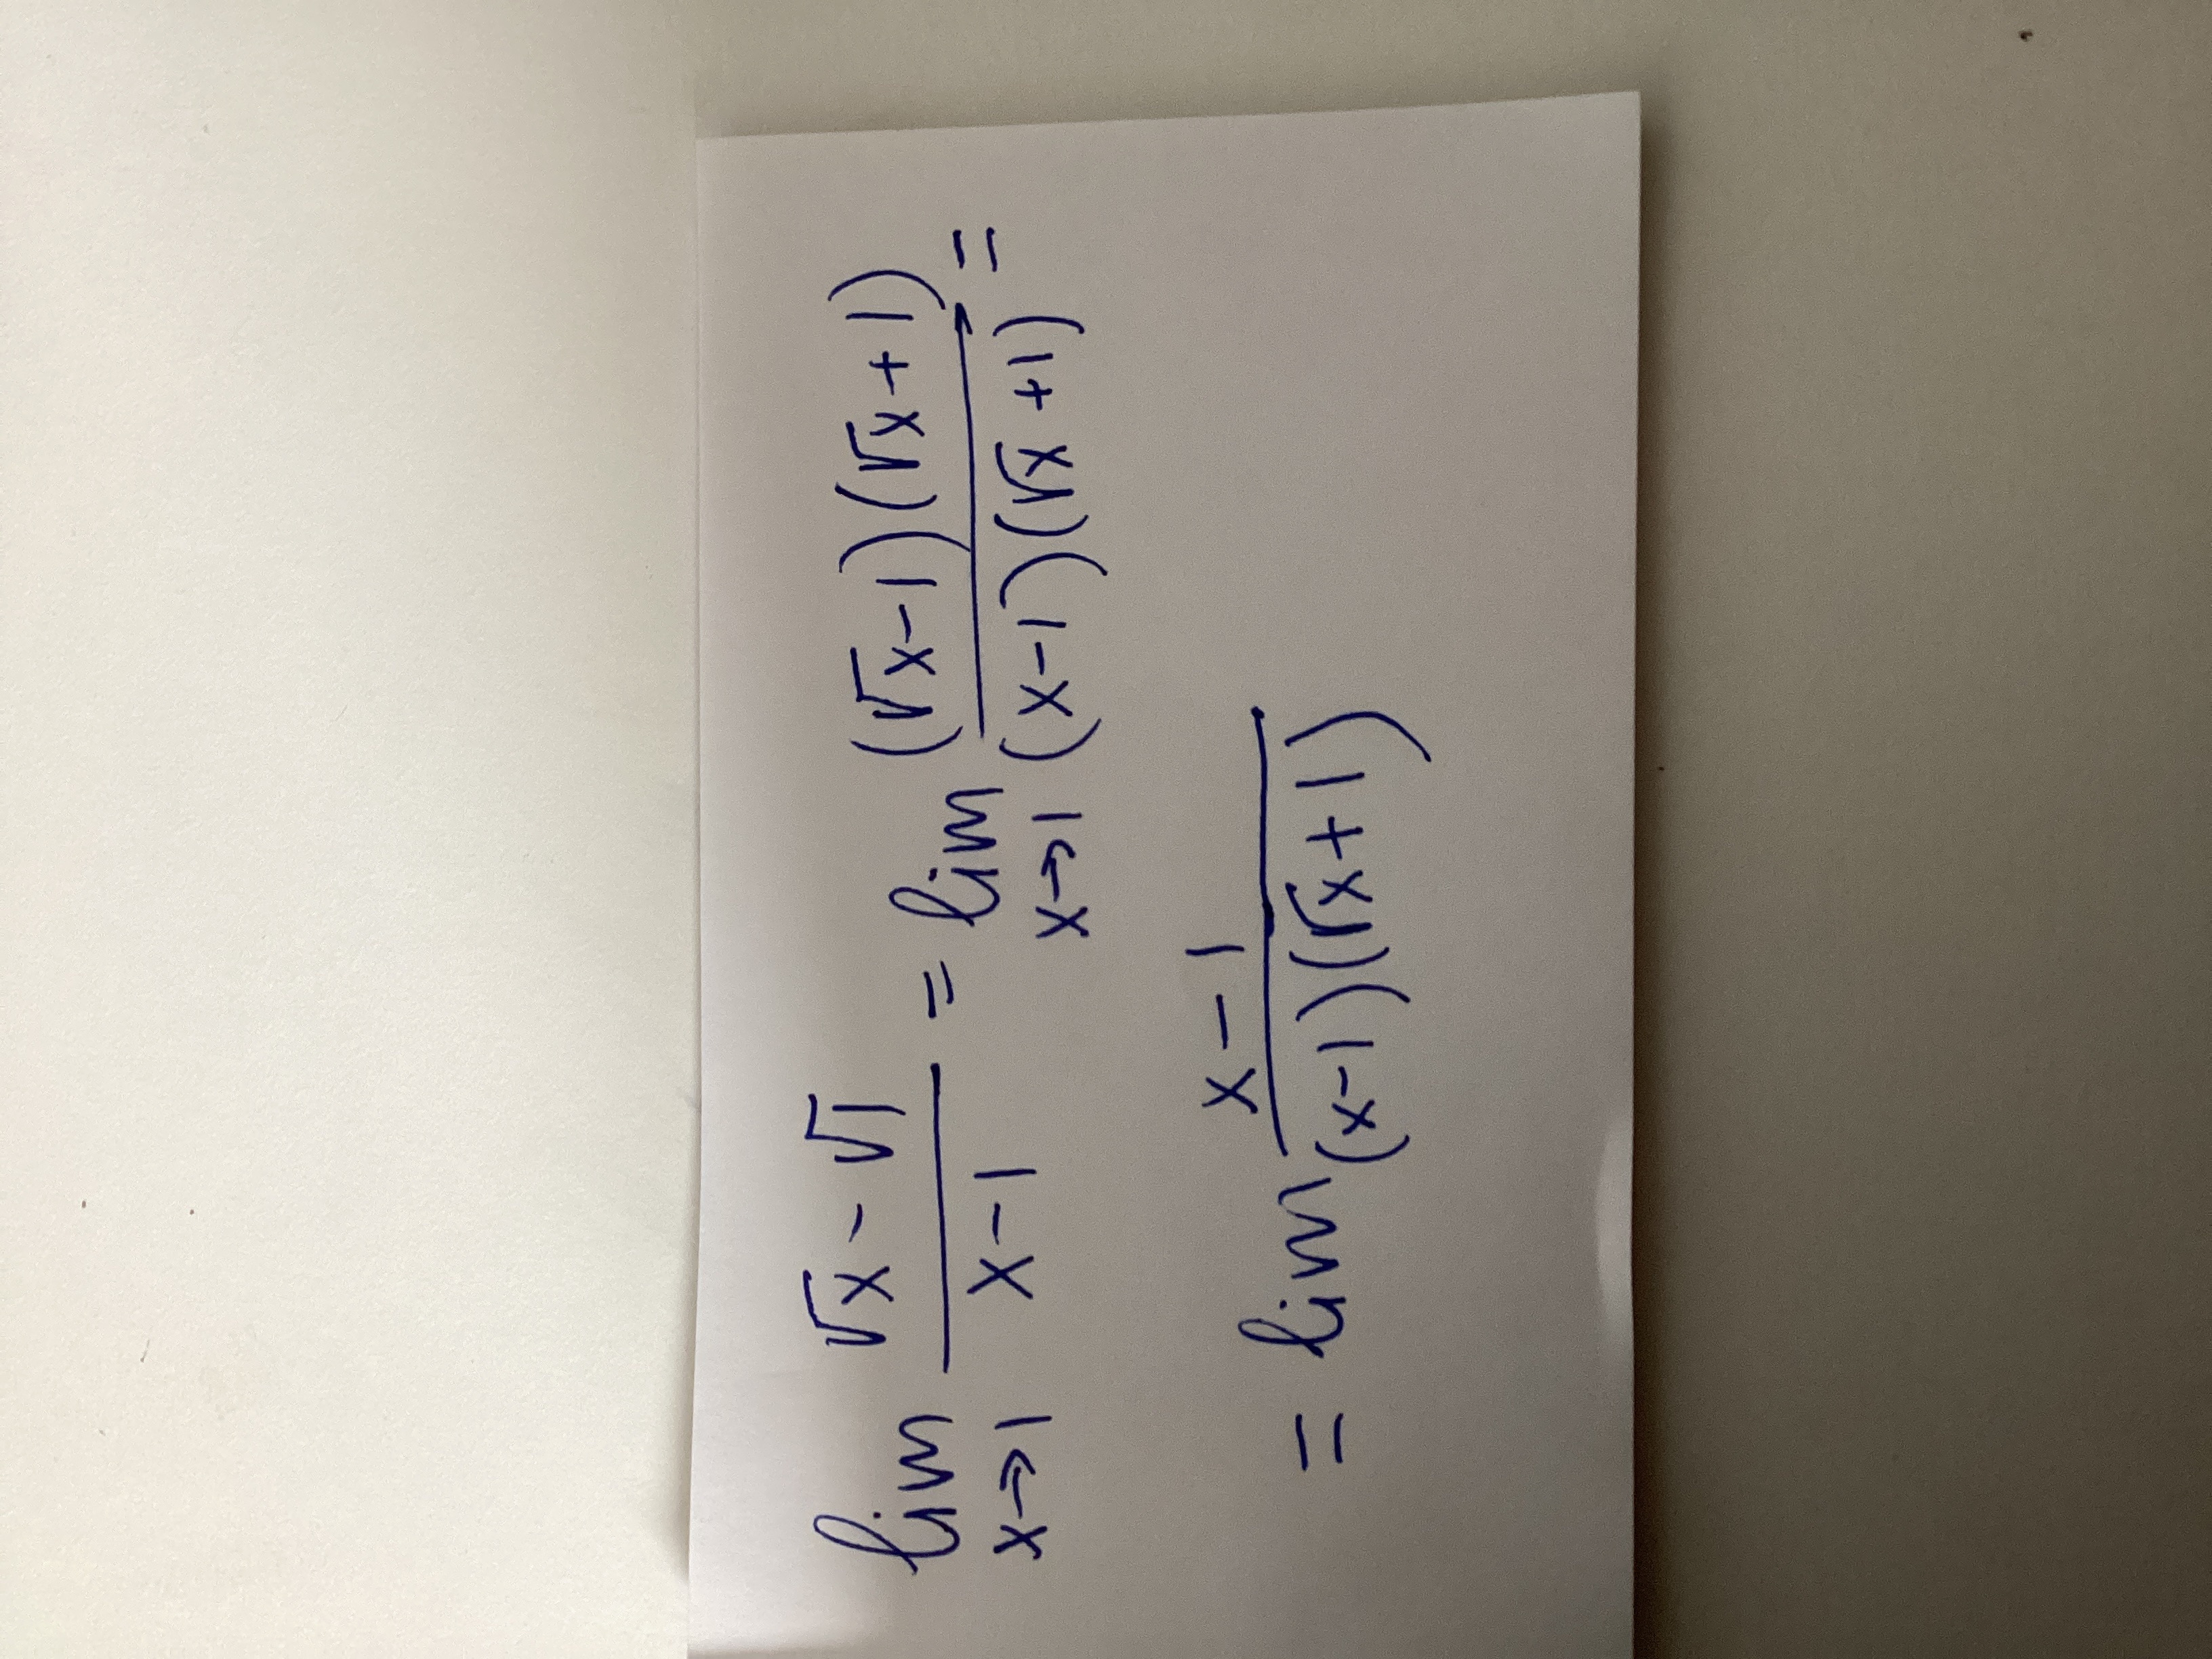 lim x→1 (√x - √1)/(x - 1) = lim x→1 ((√x - 1)(√x + 1))/((x - 1)(√x + 1)) =
= lim (x - 1)/((x - 1)(√x + 1))